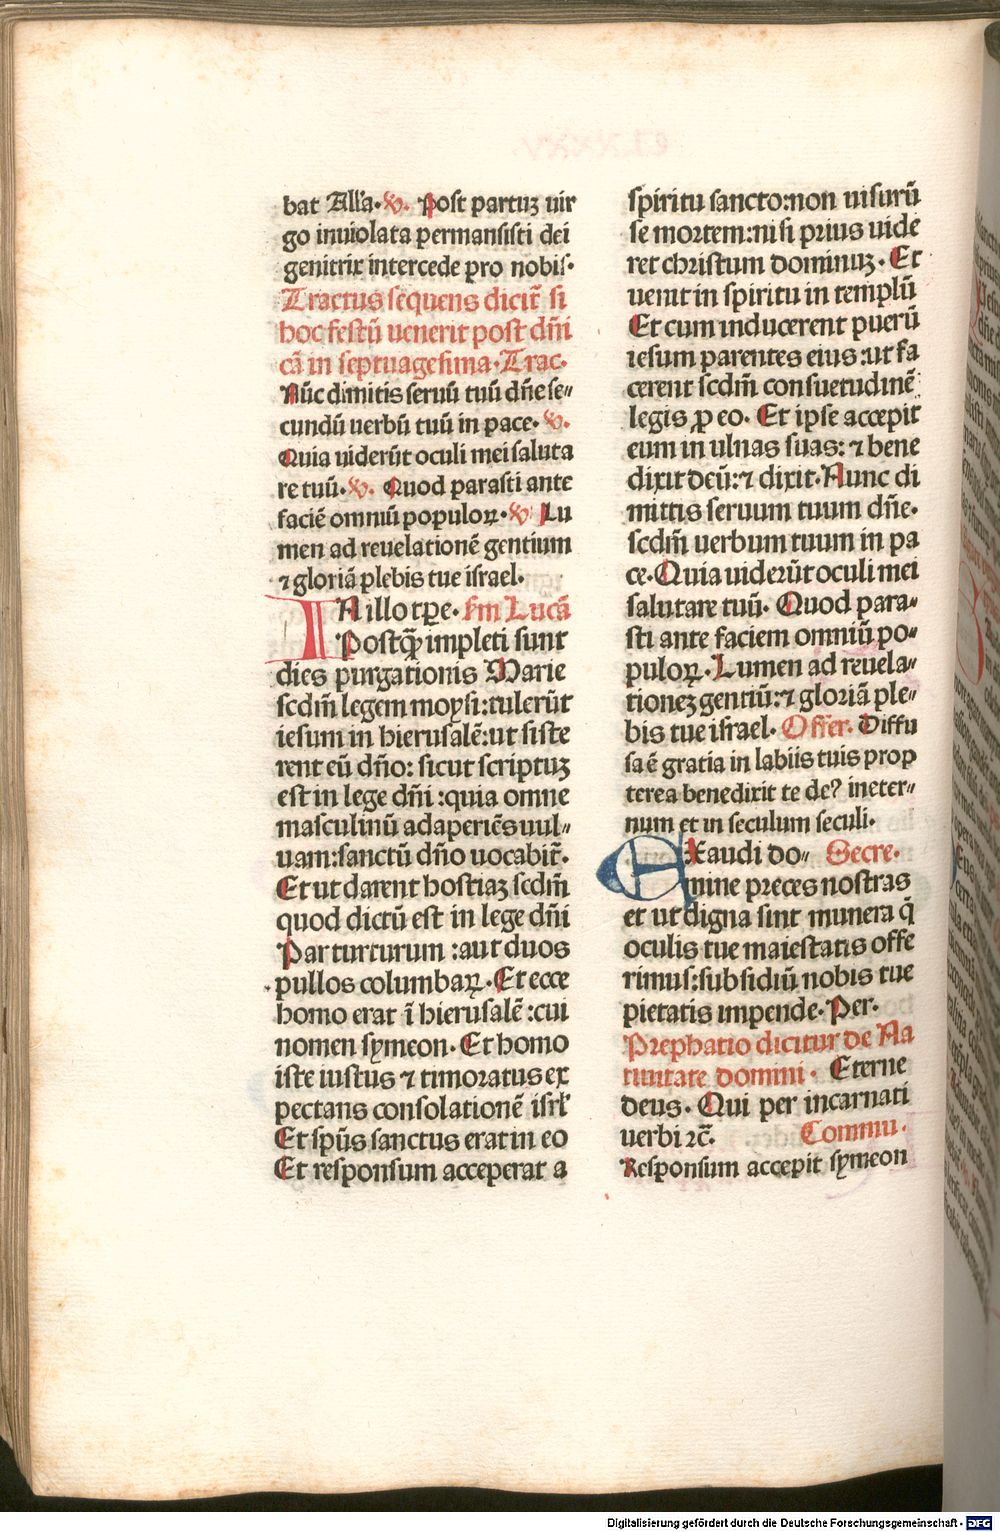 bat Alľa. ℣. Post partuʒ uir
go inuiolata permansisti dei
genitrix intercede pro nobis.
Tractus sequens dicit̃ si
hoc festū uenerit post dñi
cā in septuagesima. Trac.
Nūc dimitis seruū tuū dñe se⸗
cundū uerbū tuū in pace. ℣.
Quia uiderūt oculi mei saluta
re tuū. ℣. Quod parasti ante
faciē omniū populoꝝ. ℣. Lu
men ad reuelationē gentium
⁊ gloriā plebis tue israel.
IN illo tꝑe. Sm̄ Lucā
Postꝙ̄ impleti sunt
dies purgationis Marie
scdm̄ legem moysi: tulerūt
iesum in hierusalē: ut siste
rent eū dño: sicut scriptuʒ
est in lege dñi: quia omne
masculinū adaperiēs uul⸗
uam: sanctū dño uocabit̃.
Et ut darent hostiaʒ scdm̄
quod dictū est in lege dñi
Par turturum: aut duos
pullos columbaꝝ. Et ecce
homo erat ī hierusalē: cui
nomen symeon. Et homo
iste iustus ⁊ timoratus ex
pectans consolationē isrł
Et spūs sanctus erat in eo
Et responsum acceperat a
spiritu sancto: non uisurū
se mortem: nisi prius uide
ret christum dominuʒ. Et
uenit in spiritu in templū
Et cum inducerent puerū
iesum parentes eius: ut fa
cerent scdm̄ consuetudinē
legis ꝓ eo. Et ipse accepit
eum in ulnas suas: ⁊ bene
dixit deū: ⁊ dixit. Nunc di
mittis seruum tuum dñe.
scdm̄ uerbum tuum in pa
ce. Quia uiderūt oculi mei
salutare tuū. Quod para⸗
sti ante faciem omniū po⸗
puloꝝ. Lumen ad reuela⸗
tioneʒ gentiū: ⁊ gloriā ple⸗
bis tue israel. Offer. Diffu
sa ē gratia in labiis tuis prop
terea benedixit te de⁹ in eter⸗
num et in seculum seculi.
EXaudi do⸗ Secre.
mine preces nostras
et ut digna sint munera q̄
oculis tue maiestatis offe
rimus: subsidiū nobis tue
pietatis impende. Per.
Prephatio dicitur de Na
tiuitate domini. Eterne
deus. Qui per incarnati
uerbi ⁊c̄. Commu.
Responsum accepit symeon
Digitalisierung gefördert durch die Deutsche Forschungsgemeinschaft - DFG